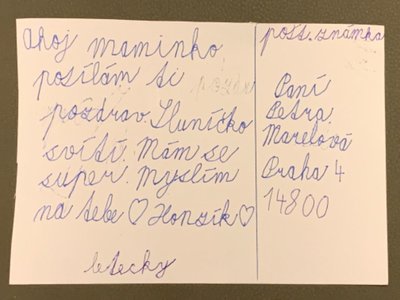 Ahoj maminko
posílám ti
pozdrav. Sluníčko
svítí. Mám se
super. Myslím
na tebe ♡ Honzík ♡
letecky
pošt. známka
Paní
Petra
Marelová
Praha 4
14800